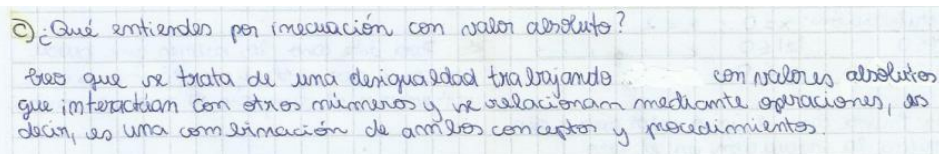 c) ¿Qué entiendes por inecuación con valor absoluto?
Creo que se trata de una desigualdad trabajando con valores absolutos
que interactúan con otros números y se relacionan mediante operaciones, es
decir, es una combinación de ambos conceptos y procedimientos.